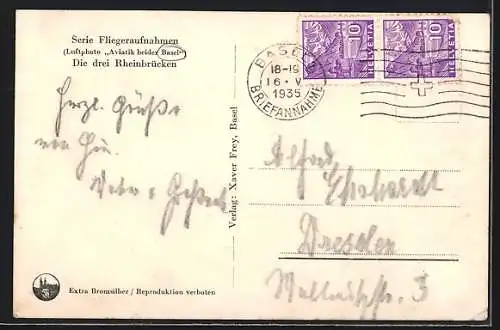 Serie Fliegeraufnahmen
(Luftphoto „Aviatik beider Basel“)
Die drei Rheinbrücken
Herzl. Grüße
von
Verlag: Xaver Frey, Basel
Extra Bromsilber / Reproduktion verboten
10 HELVETIA
10 HELVETIA
BASEL
18-19
16. V.
1935
BRIEFANNAHME
Alfred
Dresden
3